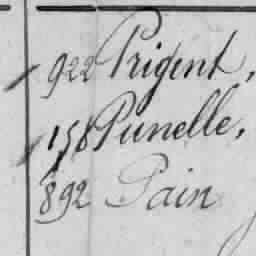 922 Prigent,
158 Punelle,
892 Pain